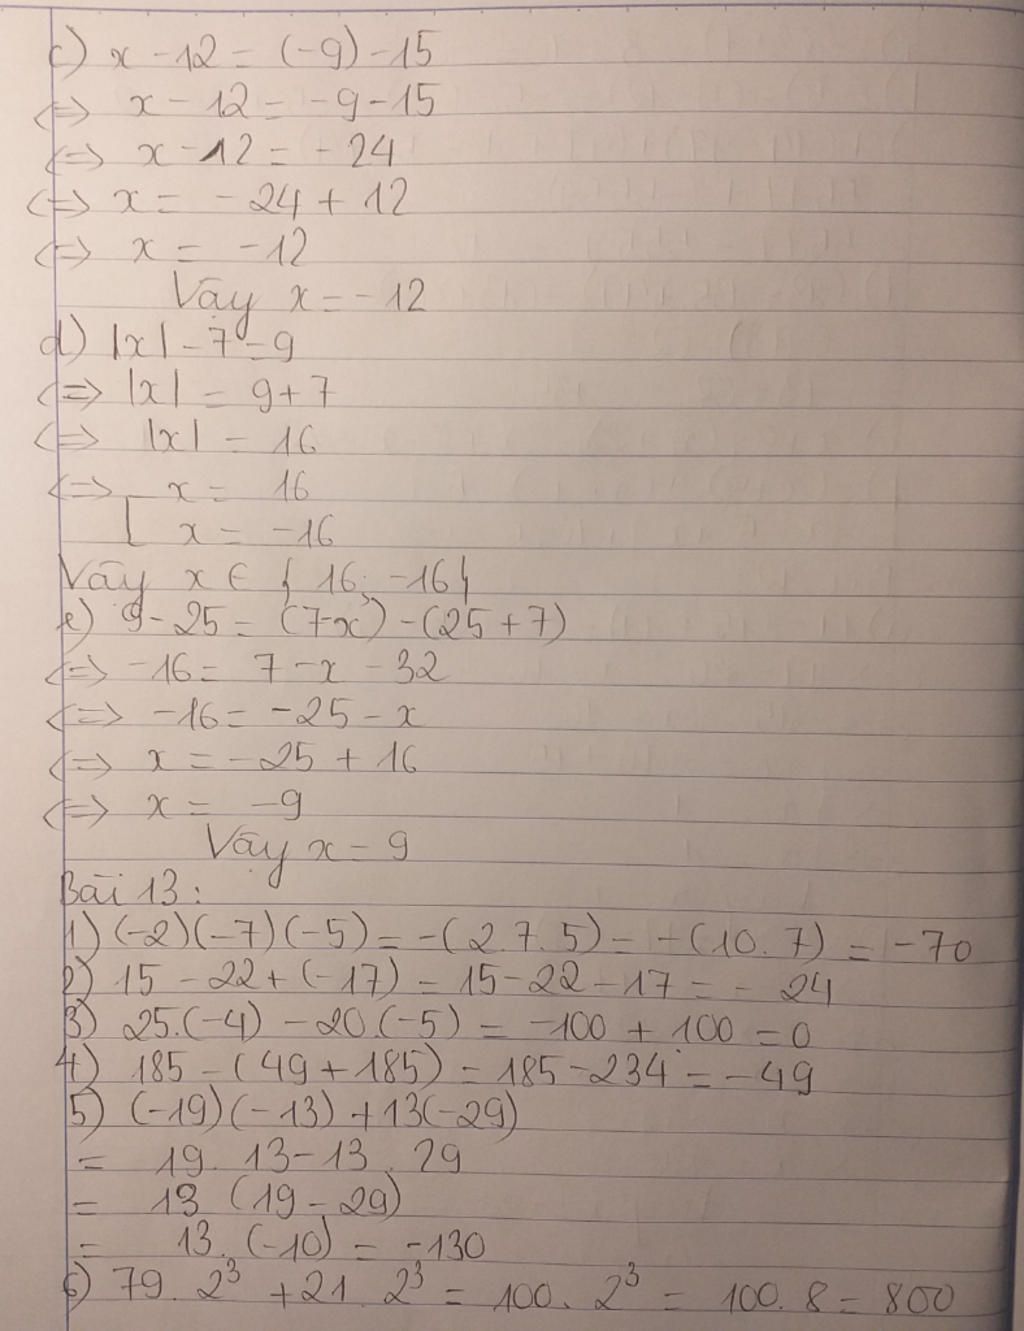 c) x - 12 = (-9) - 15
<=> x - 12 = -9 - 15
<=> x - 12 = -24
<=> x = -24 + 12
<=> x = -12
Vậy x = -12
d) |x| - 7 = 9
<=> |x| = 9 + 7
<=> |x| = 16
<=> [ x = 16
x = -16
Vậy x ∈ { 16; -16}
e) 9 - 25 = (7-x) - (25 + 7)
<=> -16 = 7 - x - 32
<=> -16 = -25 - x
<=> x = -25 + 16
<=> x = -9
Vậy x - 9
Bài 13:
1) (-2)(-7)(-5) = -(2.7.5) = -(10.7) = -70
2) 15 - 22 + (-17) = 15 - 22 - 17 = - 24
3) 25.(-4) - 20.(-5) = -100 + 100 = 0
4) 185 - (49 + 185) = 185 - 234 = -49
5) (-19)(-13) + 13(-29)
= 19. 13 - 13. 29
= 13 (19 - 29)
= 13. (-10) = -130
6) 79. 2³ + 21. 2³ = 100. 2³ = 100. 8 = 800